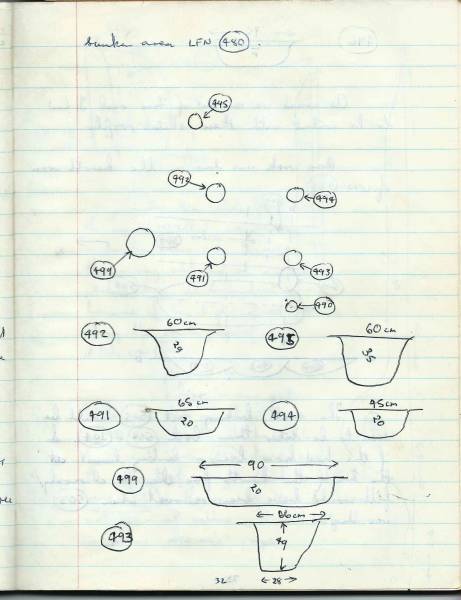 sunken area LFN 480.
445
492 494
499 491 493
490
492 60cm 29 495 60cm 35
491 65cm 20 494 45cm 20
499 90 20
493 66cm 49
28
32